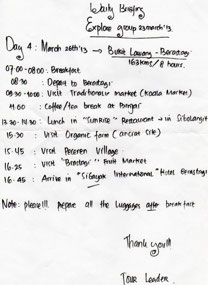 Daily Briefing
Explore group 23 march '13.
Day 4 : March 26th '13 → Bukit Lawang - Berastagi
163 kms / 8 hours.
07.00 - 08.00 : Breakfast
08.30 : Depart to Berastagi
08.30 - 10.00 : Visit Traditional market (Kuala Market)
11.00 : Coffee/tea break at Pangar
13.30 - 14.30 : Lunch in "Sunrise" Restaurant → in Sibolangit
15.30 : Visit Organic farm (ancient site)
15.45 : Visit Peceren Village
16.25 : Visit "Brastagi" Fruit Market
16.45 : Arrive in "Sibayak International" Hotel Berastagi
Note : please!!! prepare all the luggages after breakfast
Thank you!!!
Tour Leader.